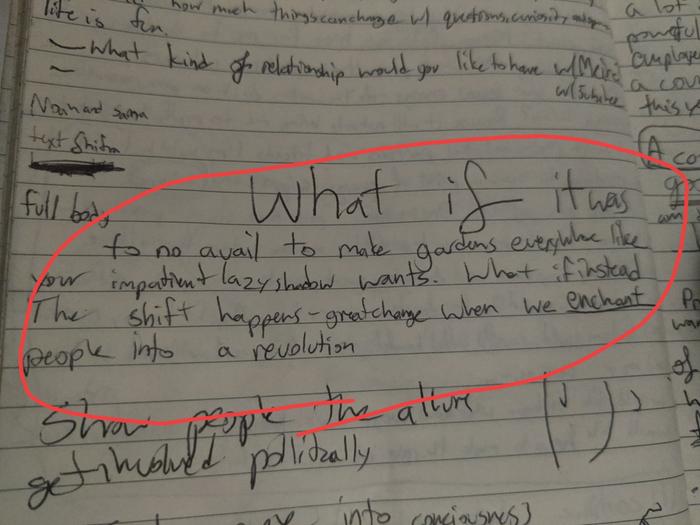 life is fun. how much things can change w/ questions, curiosity
— What kind of relationship would you like to have w/
w/
text Shifra
full body
What if it was
to no avail to make gardens everywhere like
your impatient lazy shadow wants. What if instead
The shift happens - great change when we enchant
people into a revolution
Show people the allure
get involved politically
into conciousness)
a lot
powerful
employe
a cou
this
A co
gr
am
of